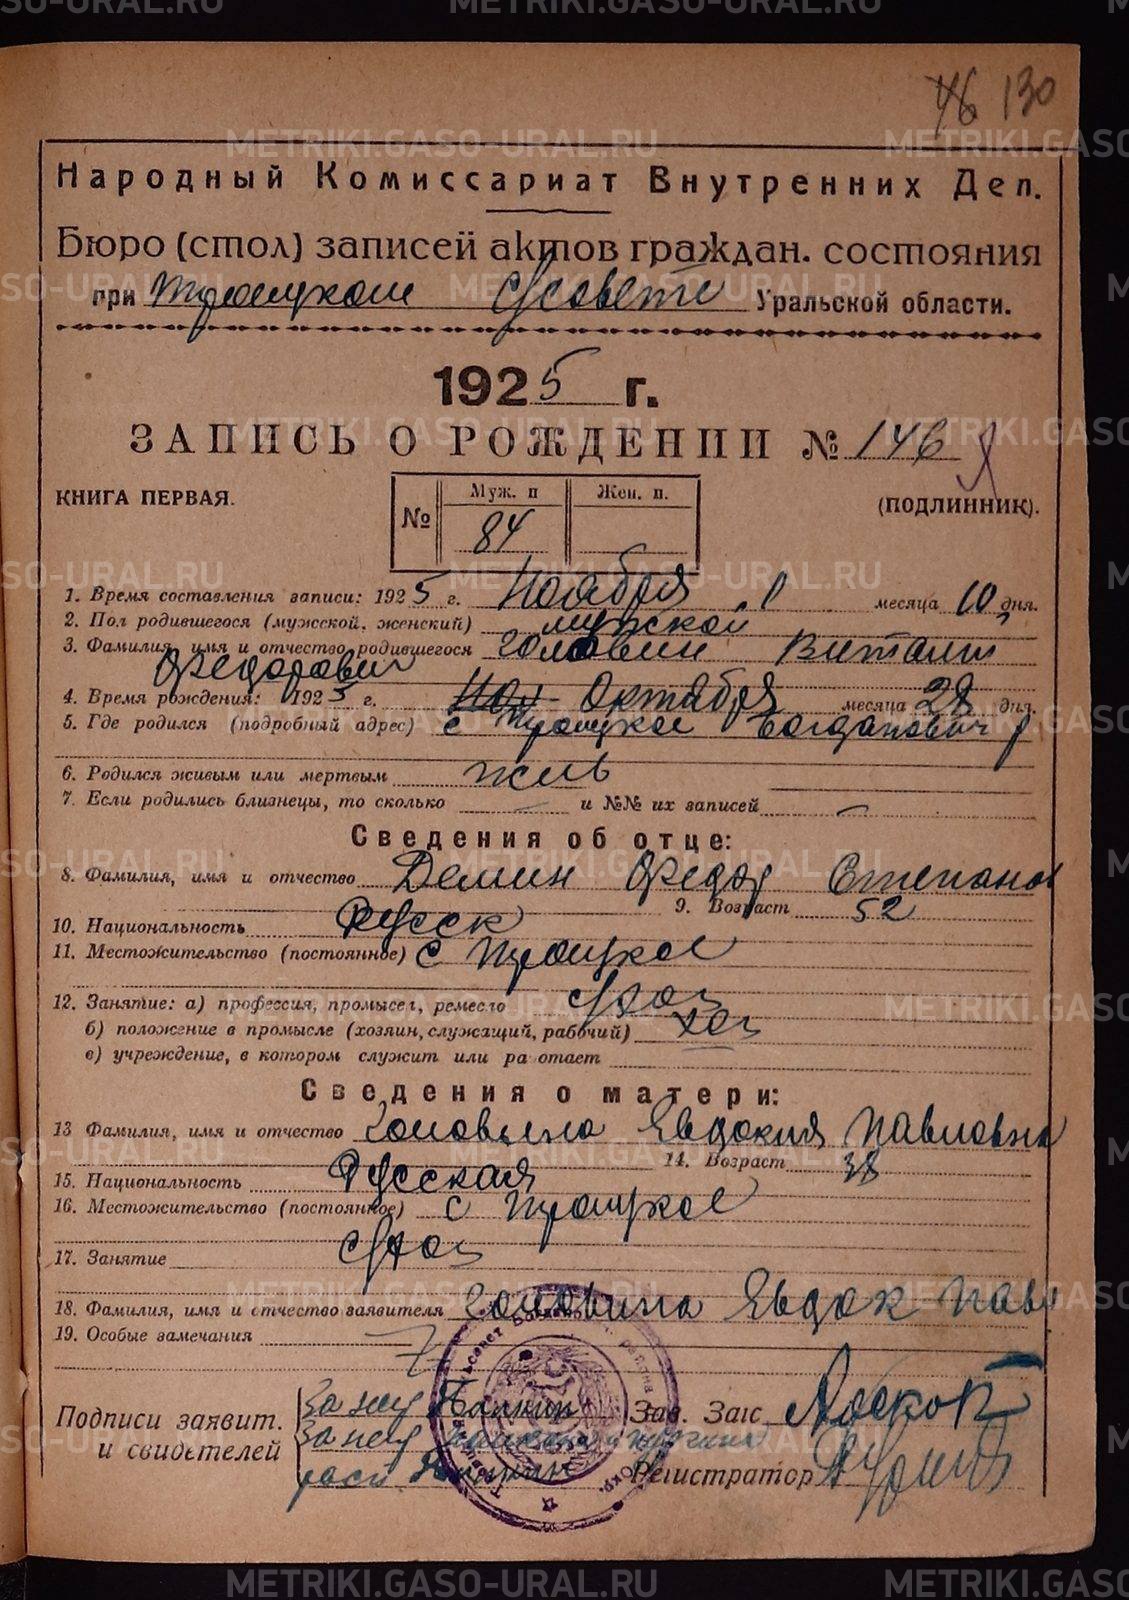 46 130
Народный Комиссариат Внутренних Дел.
Бюро (стол) записей актов граждан. состояния
при Троицком с/совете Уральской области.
1925 г.
ЗАПИСЬ О РОЖДЕНИИ № 146
КНИГА ПЕРВАЯ. (ПОДЛИННИК).
№ Муж. п Жен. п.
84
1. Время составления записи: 1925 г. Ноября месяца 10 дня.
2. Пол родившегося (мужской, женский) мужской
3. Фамилия, имя и отчество родившегося Головин Виталий
Федорович
4. Время рождения: 1925 г. Октября месяца 28 дня.
5. Где родился (подробный адрес) с Троицкое Богданович р
6. Родился живым или мертвым жив
7. Если родились близнецы, то сколько — и №№ их записей —
Сведения об отце:
8. Фамилия, имя и отчество Демин Федор Степанов
9. Возраст 52
10. Национальность Русск
11. Местожительство (постоянное) с Троицкое
12. Занятие: а) профессия, промысел, ремесло с/хоз
б) положение в промысле (хозяин, служащий, рабочий) хоз
в) учреждение, в котором служит или ра отает
Сведения о матери:
13 Фамилия, имя и отчество Головина Евдокия Павловна
14. Возраст 38
15. Национальность Русская
16. Местожительство (постоянное) с Троицкое
17. Занятие с/хоз
18. Фамилия, имя и отчество заявителя Головина Евдок Павл
19. Особые замечания
Подписи заявит. и свидетелей
за неу
Зав. Загс
Регистратор
METRIKI.GASO-URAL.RU